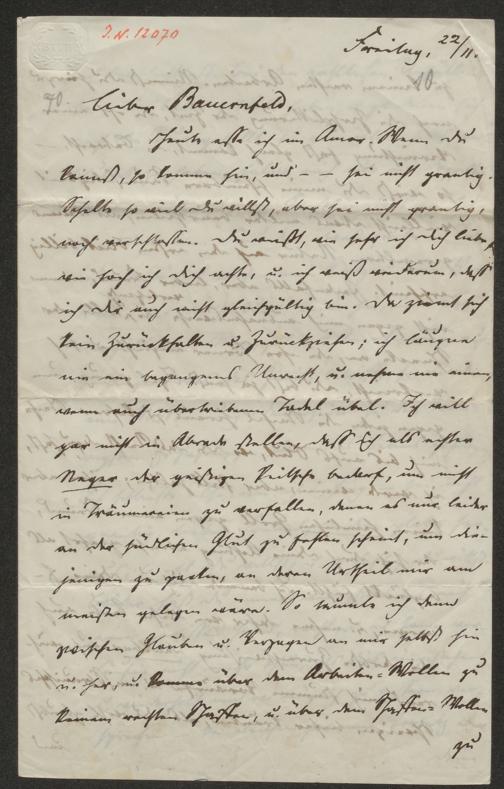 J.N. 12070
Freitag, 22/11.
10
70.
Lieber Bauernfeld,
Heute esse ich im Amor. Wenn du
kannst, so komme hin, und – – sei nicht grantig.
Schelte so viel du willst, aber sei nicht grantig,
noch verschlossen. Du weißt, wie sehr ich dich liebe,
wie hoch ich dich achte, u. ich weiß wiederum, daß
ich dir auch nicht gleichgültig bin. Da ziemt sich
kein Zurückhalten u. Zurückziehen; ich läugne
nie ein begangenes Unrecht, u. nehme nie einen,
wenn auch übertriebenen Tadel übel. Ich will
gar nicht in Abrede stellen, daß ich als echter
Neger der geistigen Peitsche bedarf, um nicht
in Träumereien zu verfallen, denen es nur leider
an der südlichen Glut zu fehlen scheint, um die-
jenigen zu packen, an deren Urtheil mir am
meisten gelegen wäre. So taumle ich denn
zwischen Glauben u. Verzagen an mir selbst hin
u. her, u. komme über dem Arbeiten-Wollen zu
keinem rechten Schaffen, u. über dem Schaffen-Wollen
zu